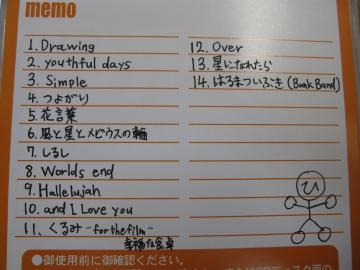 memo
1. Drawing
2. youthful days
3. Simple
4. つよがり
5. 花言葉
6. 風と星とメビウスの輪
7. しるし
8. Worlds end
9. Hallelujah
10. and I Love you
11. くるみ -for the film-
幸福な食卓
12. Over
13. 星になれたら
14. はるまついぶき (Bank Band)
ひ
●御使用前に御確認ください。